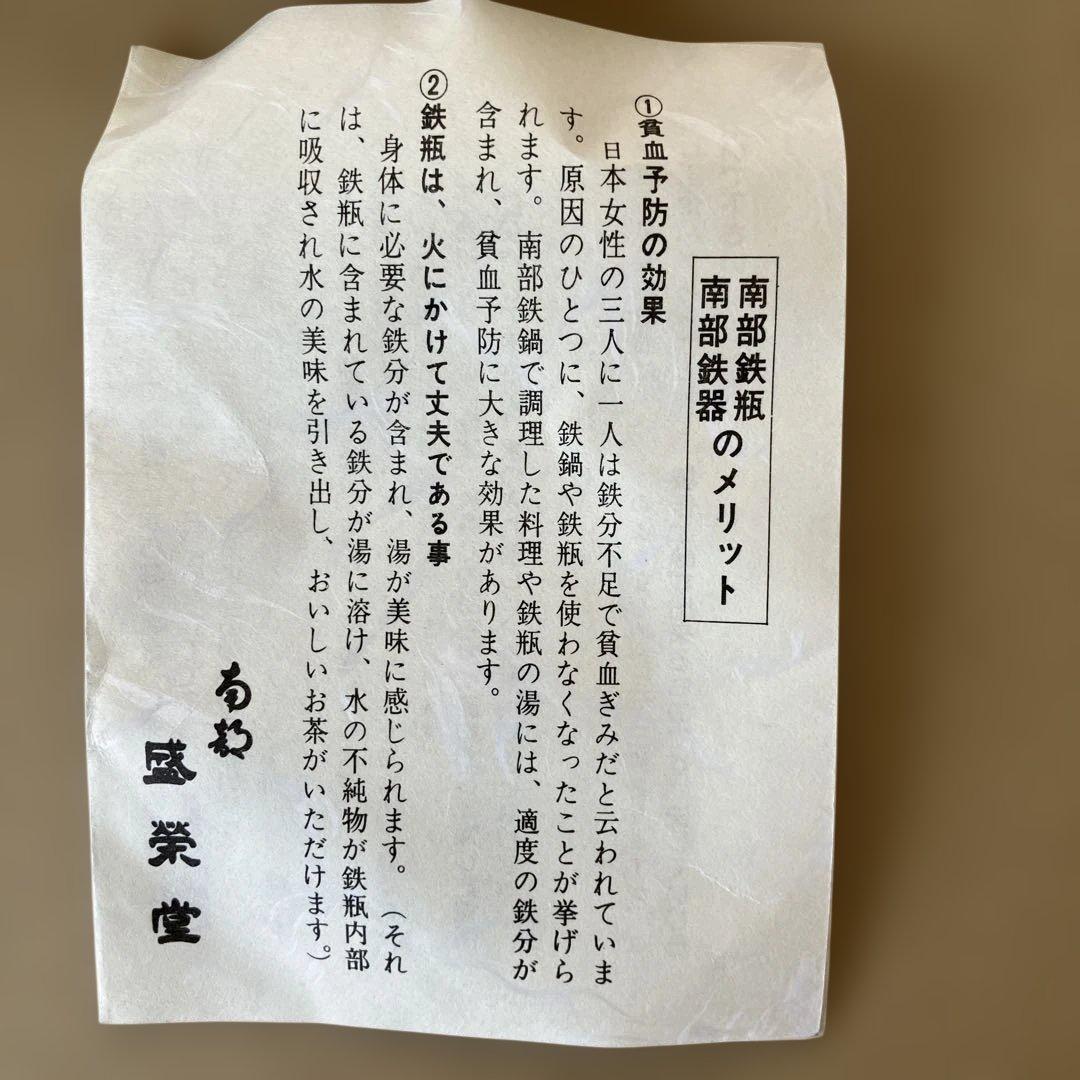 南部鉄瓶
南部鉄器
のメリット
①貧血予防の効果
日本女性の三人に一人は鉄分不足で貧血ぎみだと云われていま
す。原因のひとつに、鉄鍋や鉄瓶を使わなくなったことが挙げら
れます。南部鉄鍋で調理した料理や鉄瓶の湯には、適度の鉄分が
含まれ、貧血予防に大きな効果があります。
②鉄瓶は、火にかけて丈夫である事
身体に必要な鉄分が含まれ、湯が美味に感じられます。（それ
は、鉄瓶に含まれている鉄分が湯に溶け、水の不純物が鉄瓶内部
に吸収され水の美味を引き出し、おいしいお茶がいただけます。）
南部
盛榮堂